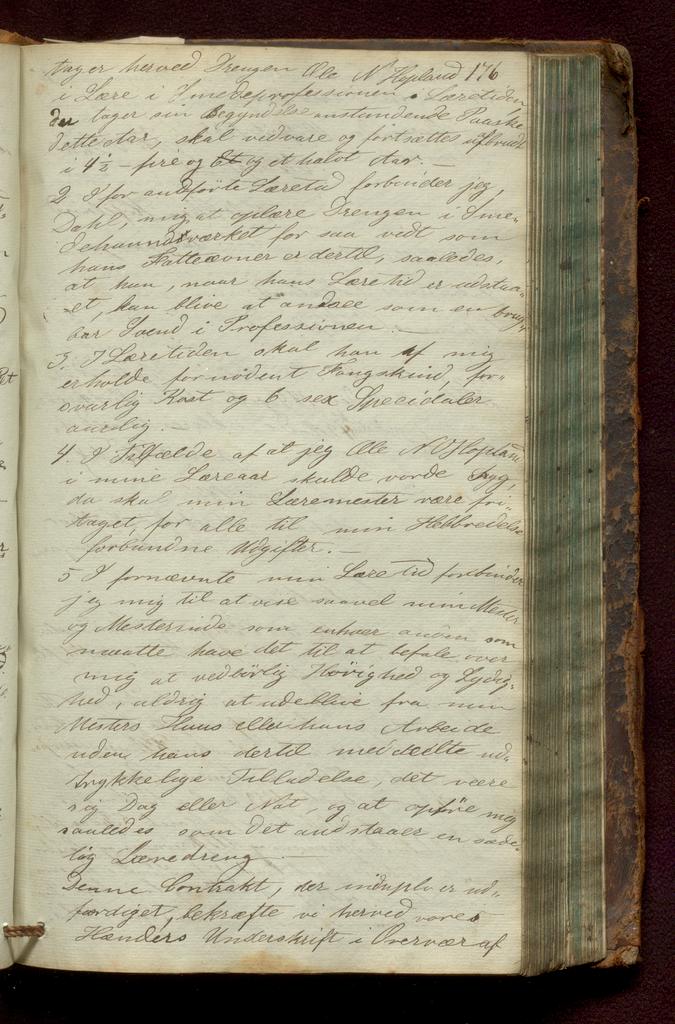 tager herved Drengen Ole N Hopland 176
i Lære i Smedeprofessionen. Læretiden
der tager sin Begyndelse anstundende Paaske
dette Aar, skal vedvare og fortsættes uafbrudt
i 4½ - fire og et og et halvt Aar. -
2 I for anførte Læretid forbinder jeg,
Dahl, mig at oplære Drengen i Sme-
dehaandværket for saa vidt som
hans Fatteævner er dertil, saaledes,
at han, naar hans Læretid er udstaa-
et, kan blive at ansee som en brug-
bar Svend i Professionen. -
3. I Læretiden skal han af mig
erholde fornødent Fangskind, for-
svarlig Kost og 6 sex Speciedaler
aarlig. -
4. I Tilfælde af at jeg Ole N Hopland
i mine Læreaar skulde vorde syg,
da skal min Læremester være fri-
taget for alle til min Helbredelse
forbundne Udgifter. -
5 I fornævnte min Læretid forbinder
jeg mig til at vise saavel min Mester
og Mesterinde som enhver anden som
maatte have det til at befale over
mig at vedbörlig Hörighed og Lydig-
hed, aldrig at udeblive fra min
Mesters Huus eller hans Arbeide
uden hans dertil meddeelte ud-
trykkelige Tilladelse, det være
sig Dag eller Nat, og at opføre mig
saaledes som det anstaaer en sæde-
lig Læredreng. -
Denne Contrakt, der in duplo er ud-
færdiget, bekræfte vi herved vores
Hænders Underskrift i Overvær af